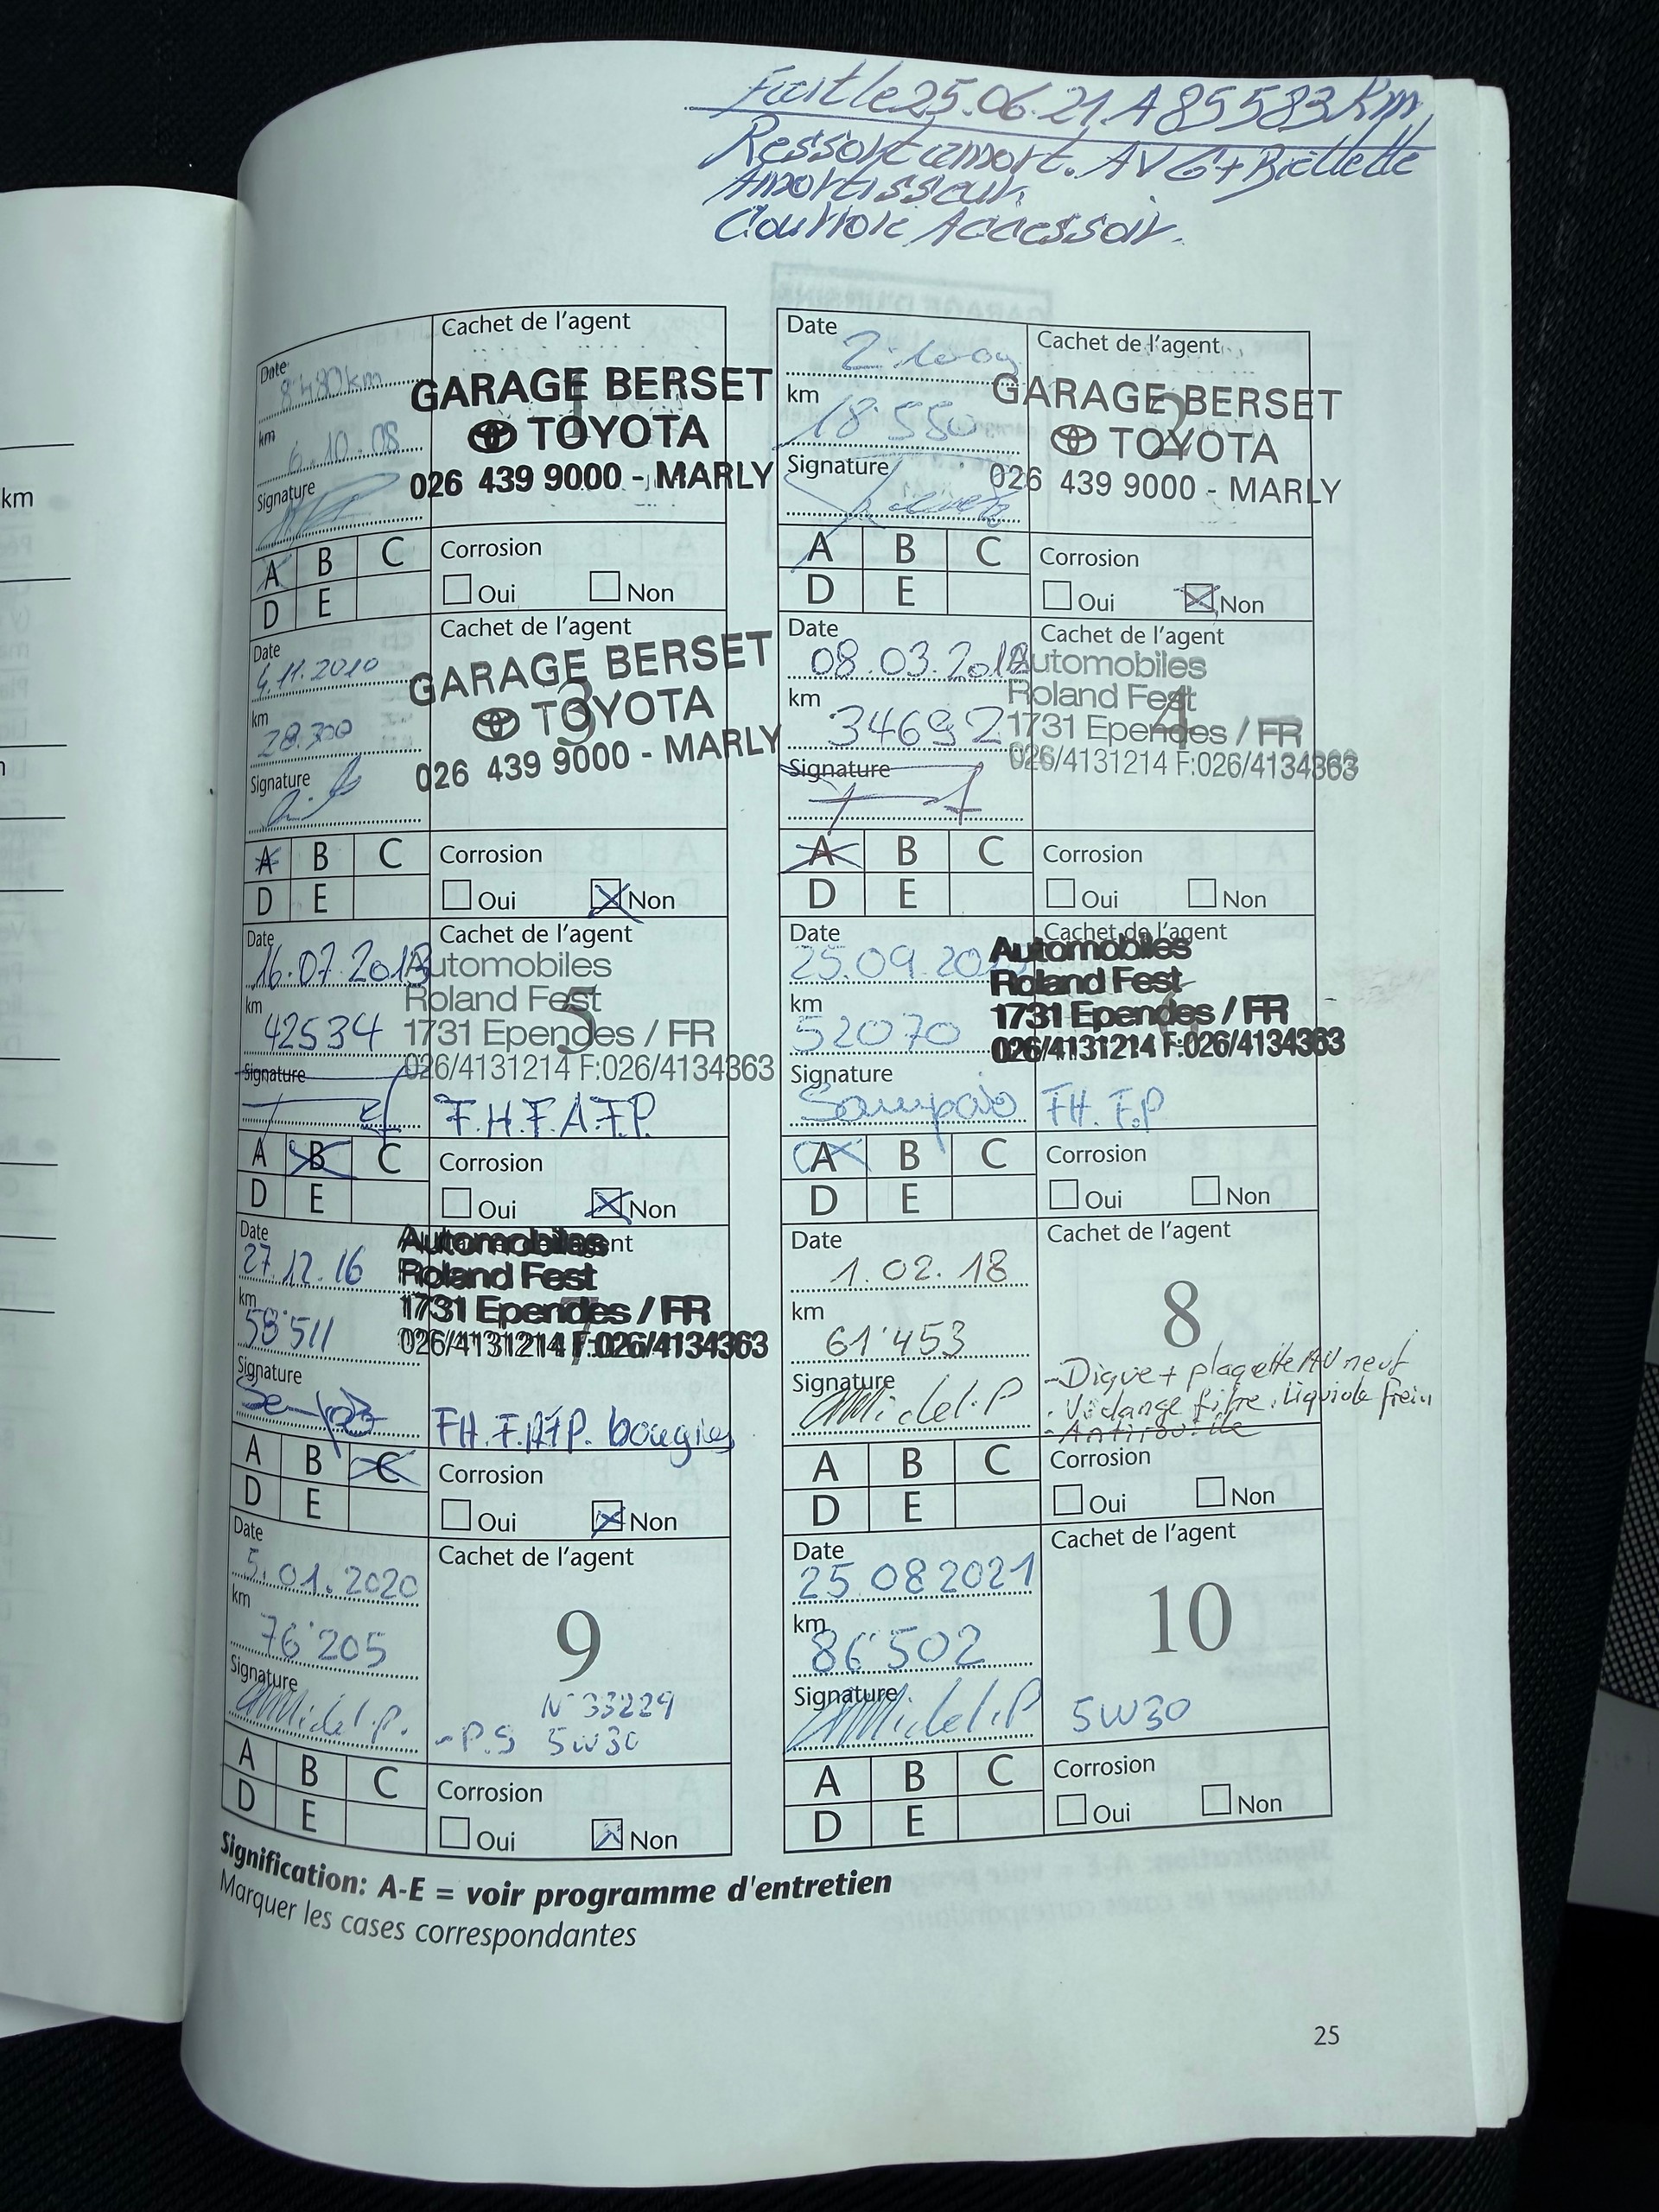 Fait le 25.06.21 A 85583 Km
Ressort amort. AV G + Biellette
Amortisseur.
Controle Accessoir.
Date
8'480 km
km
6.10.08
Signature
Cachet de l'agent
1
GARAGE BERSET
TOYOTA
026 439 9000 - MARLY
A B C
D E
Corrosion
Oui Non
Date
km
18'550
Signature
Cachet de l'agent
2
GARAGE BERSET
TOYOTA
026 439 9000 - MARLY
A B C
D E
Corrosion
Oui Non
Date
4.11.2010
km
28.300
Signature
Cachet de l'agent
3
GARAGE BERSET
TOYOTA
026 439 9000 - MARLY
A B C
D E
Corrosion
Oui Non
Date
08.03.2012
km
34692
Signature
Cachet de l'agent
4
Automobiles
Roland Fest
1731 Ependes / FR
026/4131214 F:026/4134363
A B C
D E
Corrosion
Oui Non
Date
16.07.2013
km
42534
Signature
Cachet de l'agent
5
Automobiles
Roland Fest
1731 Ependes / FR
026/4131214 F:026/4134363
F.H.F.A.F.P.
A B C
D E
Corrosion
Oui Non
Date
25.09.20
km
52070
Signature
Sampaio
Cachet de l'agent
Automobiles
Roland Fest
1731 Ependes / FR
026/4131214 F:026/4134363
FH. F.P
A B C
D E
Corrosion
Oui Non
Date
27.12.16
km
58'511
Signature
7
Automobiles
Roland Fest
1731 Ependes / FR
026/4131214 F:026/4134363
FH.F.AFP. bougies
A B C
D E
Corrosion
Oui Non
Date
1.02.18
km
61'453
Signature
Cachet de l'agent
8
- Disque + plaquette AV neuf
- Vidange filtre. Liquide frein
- Antirouille
A B C
D E
Corrosion
Oui Non
Date
5.01.2020
km
76'205
Signature
Cachet de l'agent
9
N° 33229
- P.S 5W30
A B C
D E
Corrosion
Oui Non
Date
25 08 2021
km
86'502
Signature
Cachet de l'agent
10
5W30
A B C
D E
Corrosion
Oui Non
Signification: A-E = voir programme d'entretien
Marquer les cases correspondantes
25
km